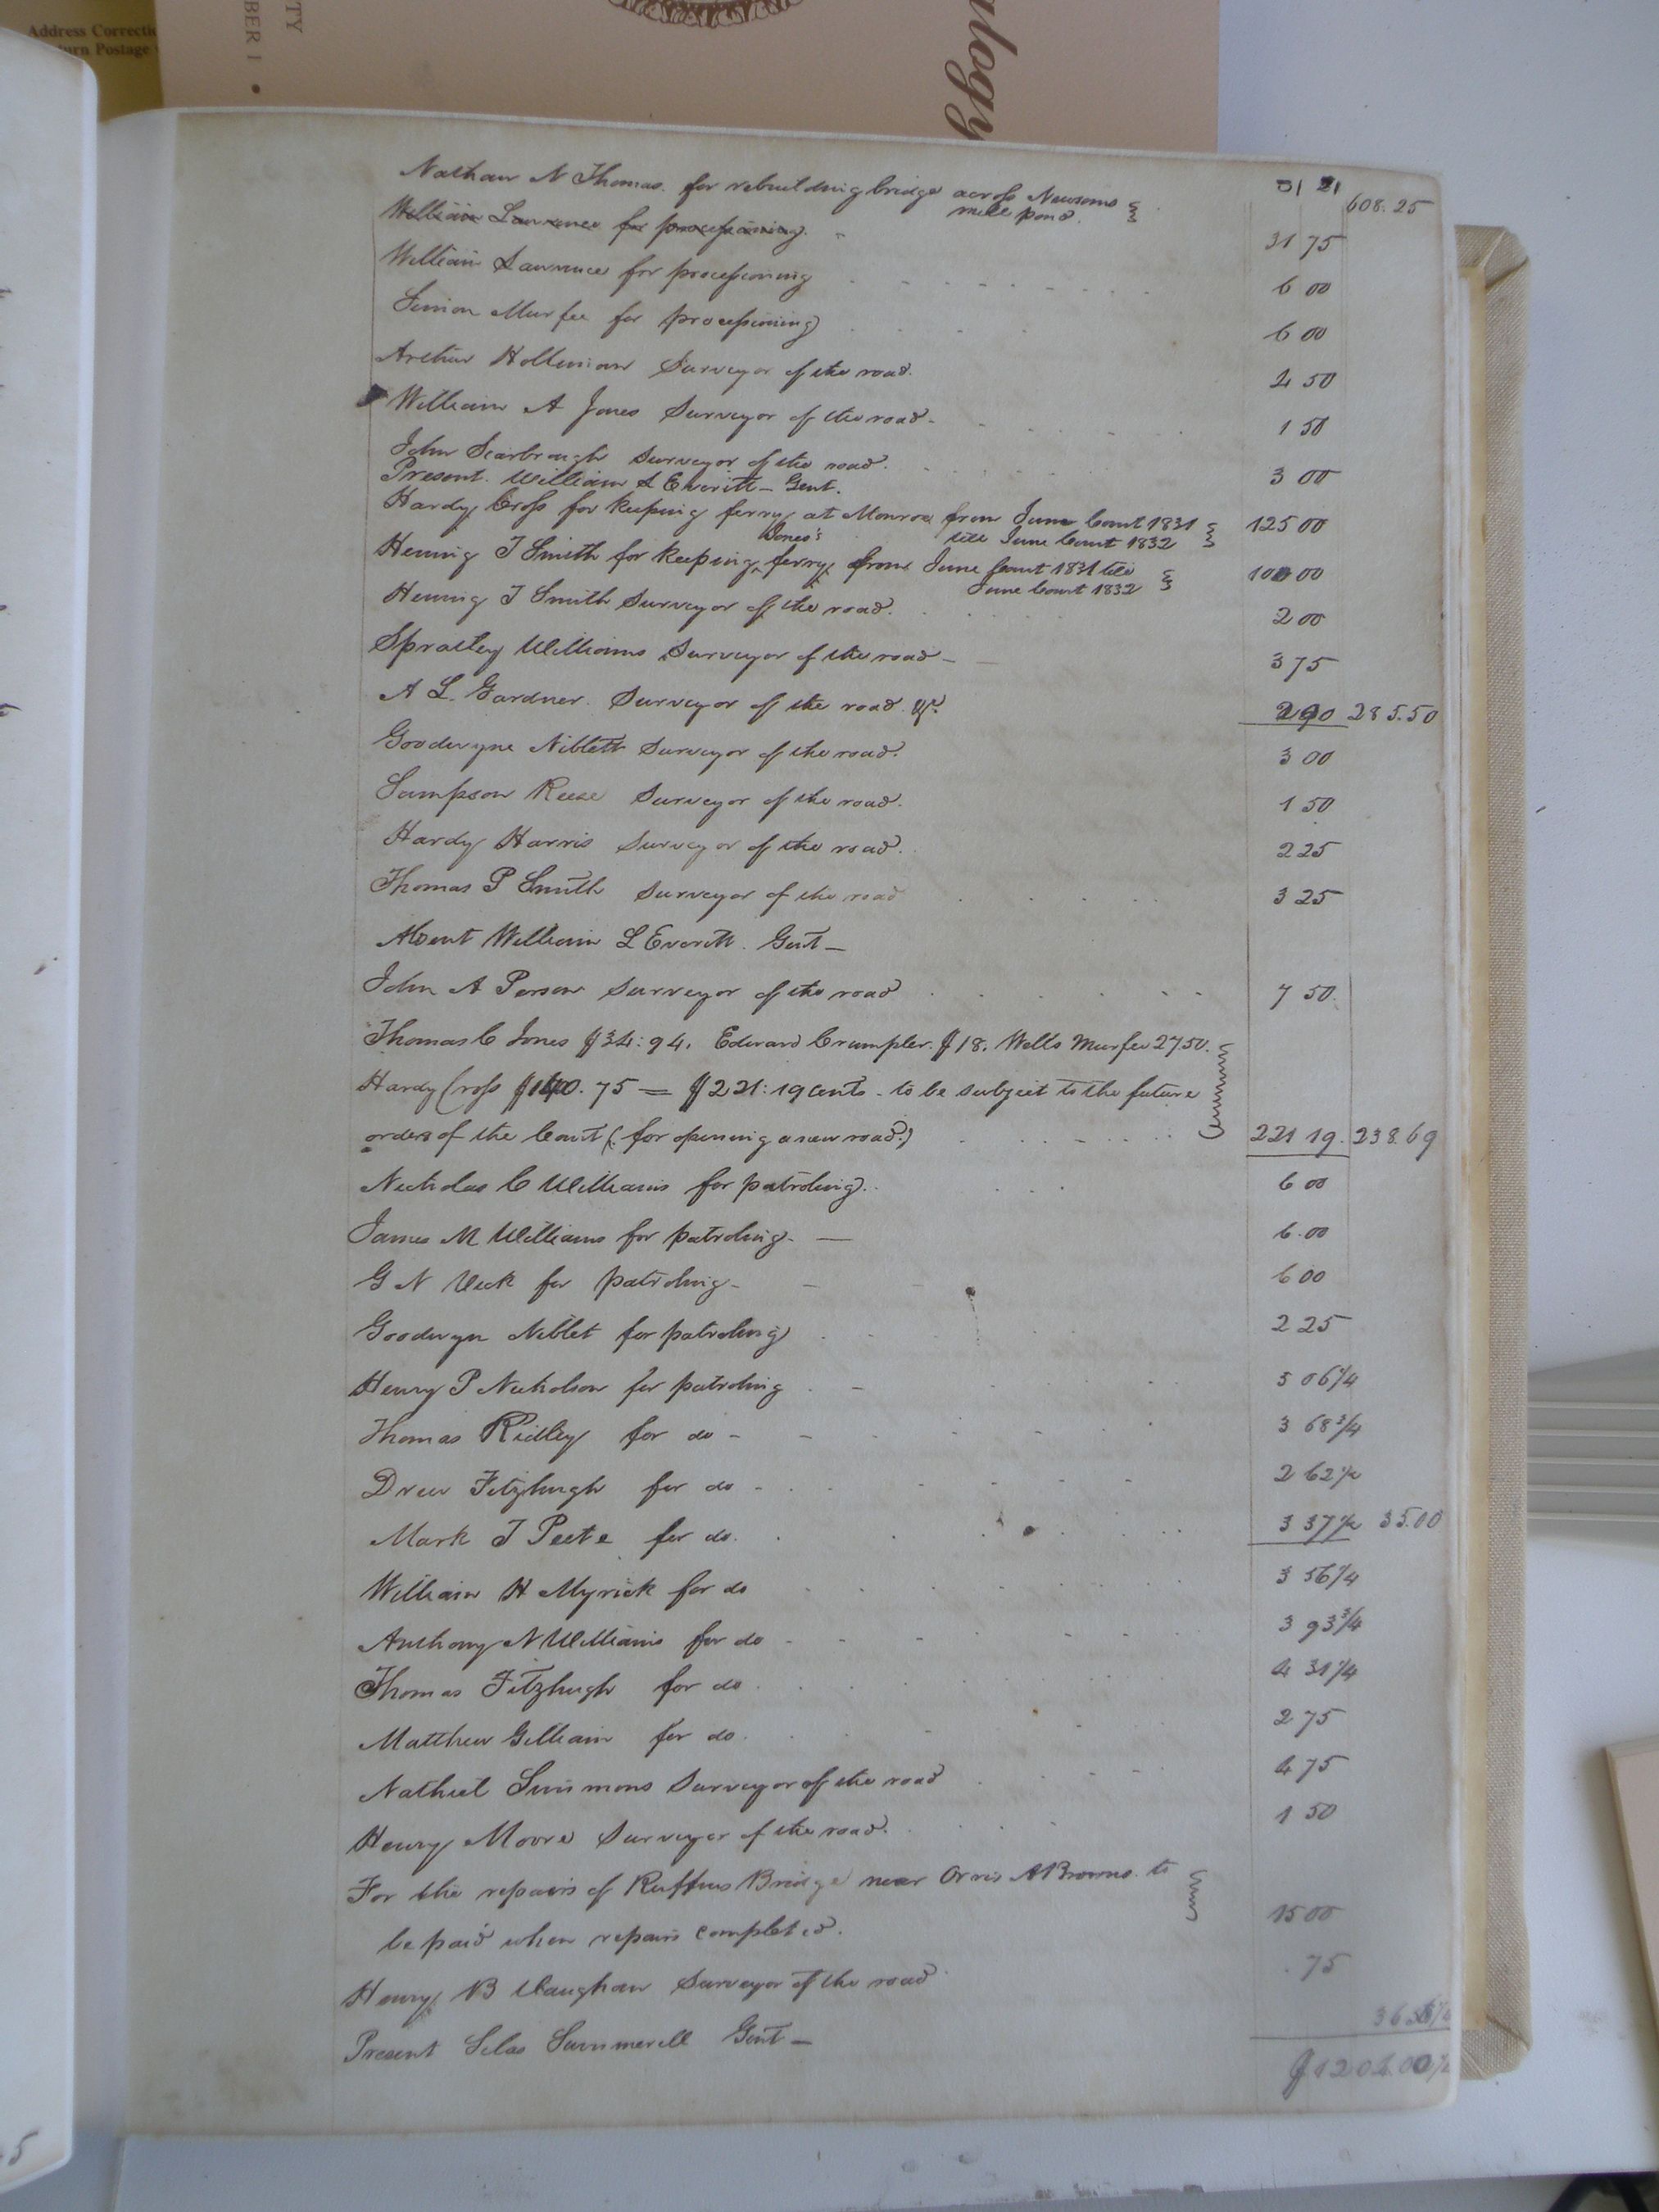 Address Correctio
urn Postage
TY
BER 1 •
ulogy
608.25
Nathan N Thomas. for rebuilding bridge across Newsoms
mill pond. 31 75
William Lawrence for processioning.
William Lawrence for processioning 6 00
Simon Murfee for processioning 6 00
Arthur Holleman Surveyor of the road. 4 50
William A Jones Surveyor of the road - 1 50
John Scarbrough Surveyor of the road. 3 00
Present. William L Everitt - Gent.
Hardy Cross for keeping ferry at Monroe from June Court 1831
till June Court 1832 125 00
Hennig T Smith for keeping Jones's ferry from June Court 1831 till
June Court 1832 100 00
Hennig T Smith Surveyor of the road. 2 00
Spratley Williams Surveyor of the road - 3 75
A L. Gardner. Surveyor of the road. 285.50
Goodwyne Niblett Surveyor of the road. 3 00
Sampson Reese Surveyor of the road. 1 50
Hardy Harris Surveyor of the road. 2 25
Thomas P Smith Surveyor of the road 3 25
Absent William L Everitt. Gent -
John A Person Surveyor of the road 7 50.
Thomas C Jones $34:94. Edward Crumpler. $18. Wells Murfee 27 50.
Hardy Cross $140.75 = $221:19 cents - to be subject to the future
orders of the Court (for opening a new road.) 221 19. 238.69
Nicholas C Williams for patroling. 6 00
James M Williams for patroling - 6.00
G N Vick for patroling - 6 00
Goodwyn Niblet for patroling 2 25
Henry P Nicholson for patroling 5 06 1/4
Thomas Ridley for do - 3 68 3/4
Drew Fitzhugh for do - 2 62 1/2
Mark T Peete for do. 3 37 1/2 35.00
William H Myrick for do 3 56 1/4
Anthony N Williams for do - 3 93 3/4
Thomas Fitzhugh for do 4 31 1/4
Matthew Gilliam for do. 2 75
Nathiel Simmons Surveyor of the road 4 75
Henry Moore Surveyor of the road. 1 50
For the repairs of Ruffins Bridge near Orris A Browns. to
be paid when repairs completed. 15 00
Henry B Vaughan Surveyor of the road .75
Present Silas Summerell Gent -
$1204.00 1/2